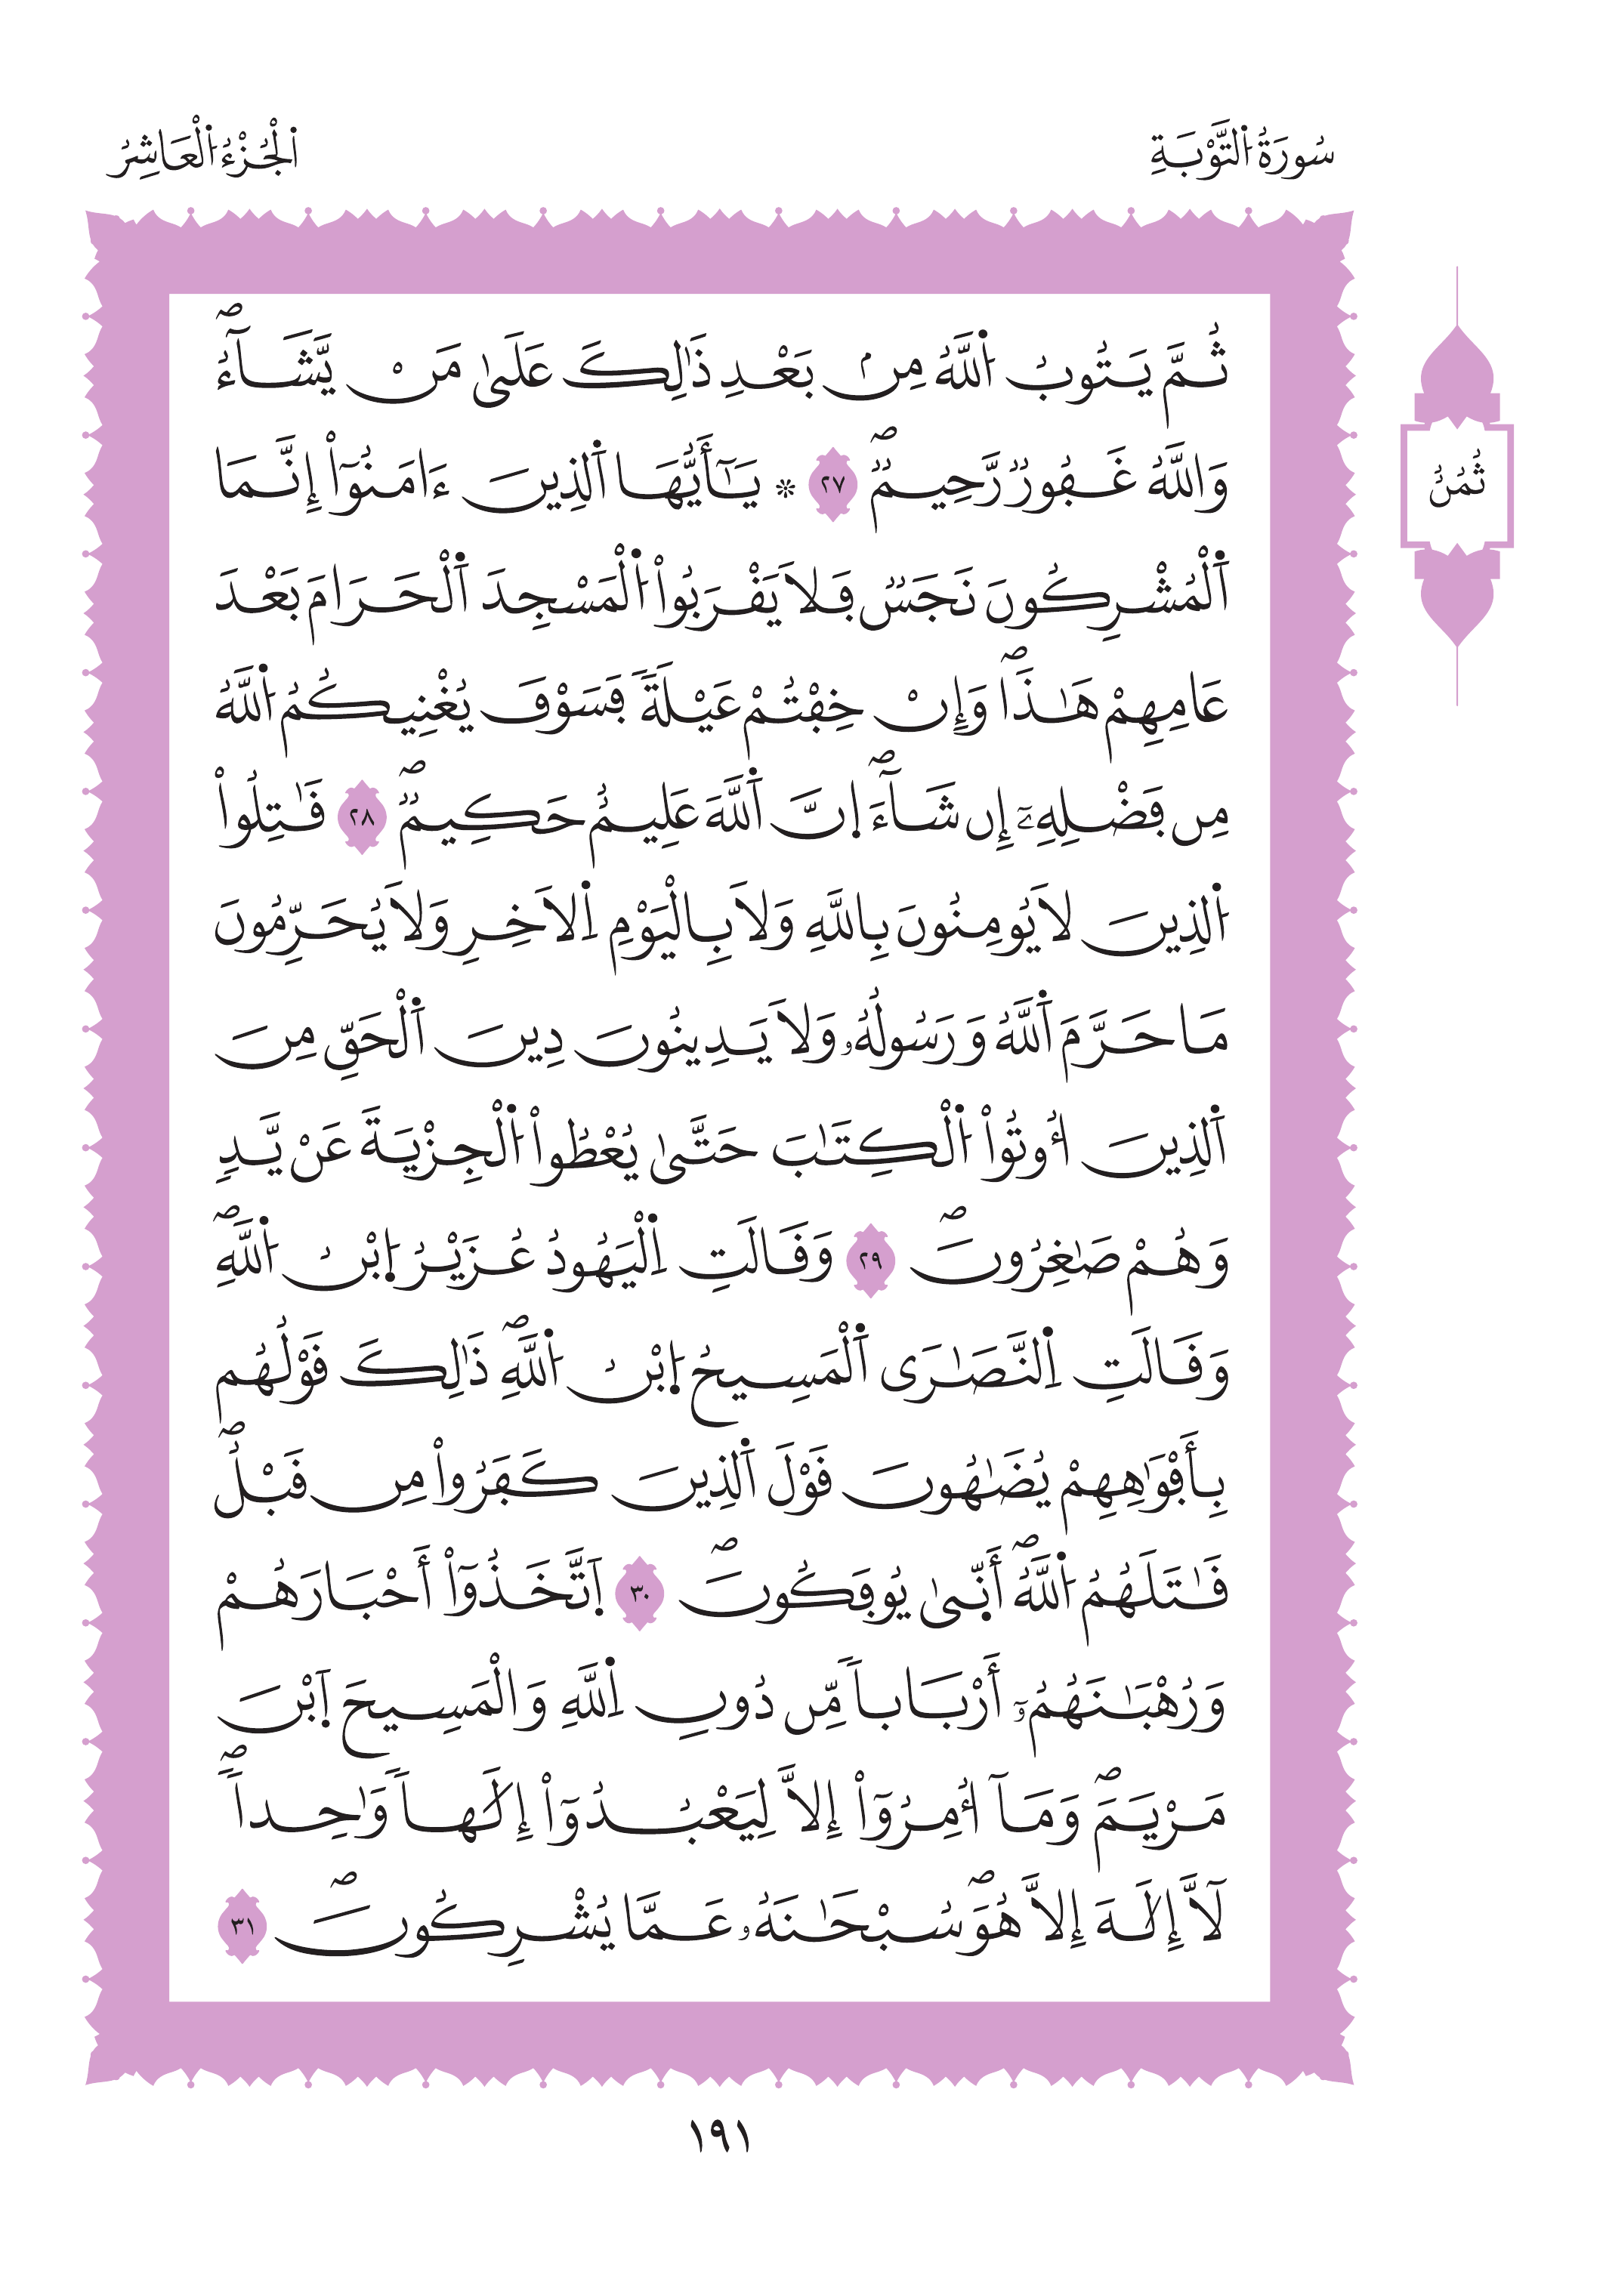 سُورَةُ اُلتَّوْبَةِ
اَلْجُزْءُ اُلْعَاشِرُ
ثُمَّ يَتُوبُ اُللَّهُ مِنۢ بَعْدِ ذَٰلِكَ عَلَىٰ مَنْ يَّشَآءُۖ
وَاللَّهُ غَفُورٌ رَّحِيمٌۖ ٢٧ * يَٰٓأَيُّهَا اَلذِينَ ءَامَنُوٓاْ إِنَّمَا
اَلْمُشْرِكُونَ نَجَسٌ فَلَا يَقْرَبُواْ اُلْمَسْجِدَ اَلْحَرَامَ بَعْدَ
عَامِهِمْ هَٰذَاۖ وَإِنْ خِفْتُمْ عَيْلَةً فَسَوْفَ يُغْنِيكُمُ اُللَّهُ
مِن فَضْلِهِۦٓ إِن شَآءَۖ اِنَّ اَللَّهَ عَلِيمٌ حَكِيمٌۖ ٢٨ قَٰتِلُواْ
اُلذِينَ لَا يُومِنُونَ بِاللَّهِ وَلَا بِالْيَوْمِ اِلَاخِرِ وَلَا يُحَرِّمُونَ
مَا حَرَّمَ اَللَّهُ وَرَسُولُهُۥ وَلَا يَدِينُونَ دِينَ اَلْحَقِّ مِنَ
اَلذِينَ أُوتُواْ اُلْكِتَٰبَ حَتَّىٰ يُعْطُواْ اُلْجِزْيَةَ عَنْ يَّدٍ
وَهُمْ صَٰغِرُونَۖ ٢٩ وَقَالَتِ اِلْيَهُودُ عُزَيْرُ اُ۪بْنُ اُللَّهِۖ
وَقَالَتِ اِلنَّصَٰرَى اَلْمَسِيحُ اُ۪بْنُ اُللَّهِۖ ذَٰلِكَ قَوْلُهُم
بِأَفْوَٰهِهِمْ يُضَٰهُونَ قَوْلَ اَلذِينَ كَفَرُواْ مِن قَبْلُۖ
قَٰتَلَهُمُ اُللَّهُۖ أَنّ۪ىٰ يُوفَكُونَۖ ٣٠ اَ۪تَّخَذُوٓاْ أَحْبَارَهُمْ
وَرُهْبَٰنَهُمُۥٓ أَرْبَاباً مِّن دُونِ اِللَّهِ وَالْمَسِيحَ اَ۪بْنَ
مَرْيَمَۖ وَمَآ أُمِرُوٓاْ إِلَّا لِيَعْبُدُوٓاْ إِلَٰهاً وَٰحِداًۖ
لَّآ إِلَٰهَ إِلَّا هُوَۖ سُبْحَٰنَهُۥ عَمَّا يُشْرِكُونَۖ ٣١
ثُمُنٌ
١٩١